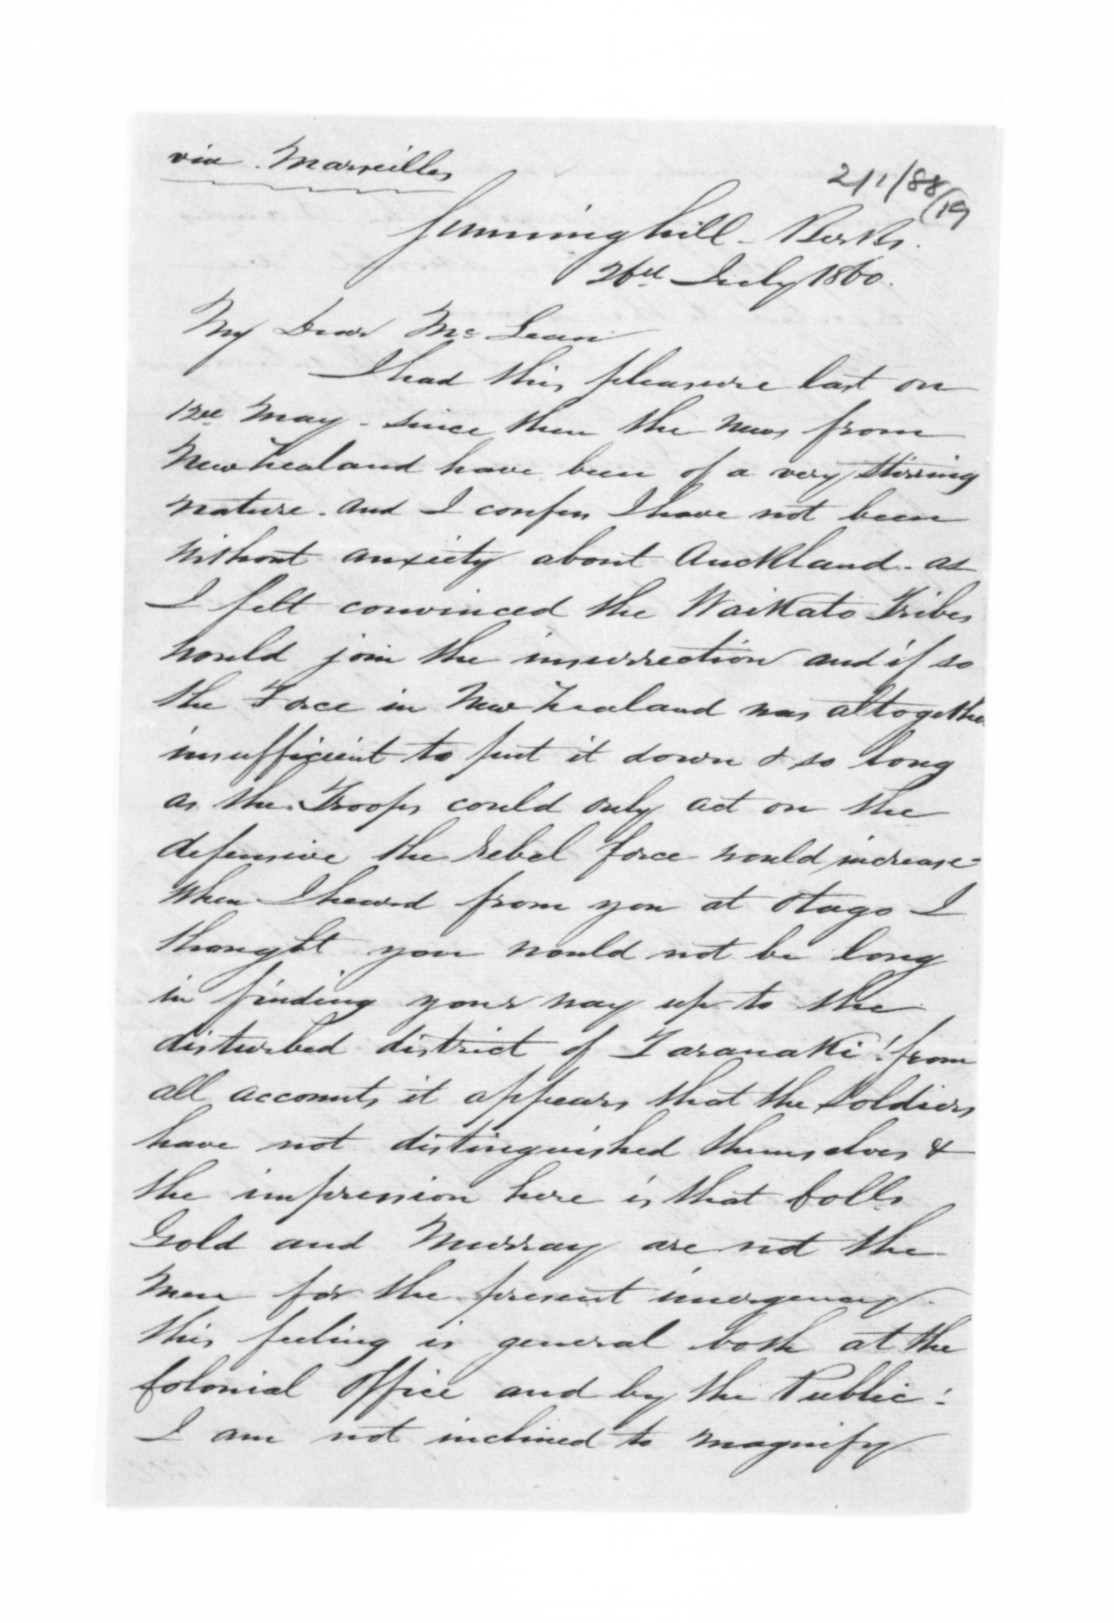 via Marseilles
2/1/88
(19
Sunninghill - Berks.
26th July 1860.
My Dear McLean
I had this pleasure last on
12th May - since then the news from
New Zealand have been of a very stirring
nature. and I confess I have not been
without anxiety about Auckland. as
I felt convinced the Waikato Tribes
would join the insurrection and if so
the Force in New Zealand was altogether
insufficient to put it down & so long
as the Troops could only act on the
defensive the rebel force would increase -
When I heard from you at Otago I
thought you would not be long
in finding your way up to the
disturbed district of Taranaki! from
all accounts it appears that the Soldiers
have not distinguished themselves &
the impression here is that Colls
Gold and Murray are not the
Men for the present imergency.
this feeling is general both at the
Colonial Office and by the Public:
I am not inclined to magnify